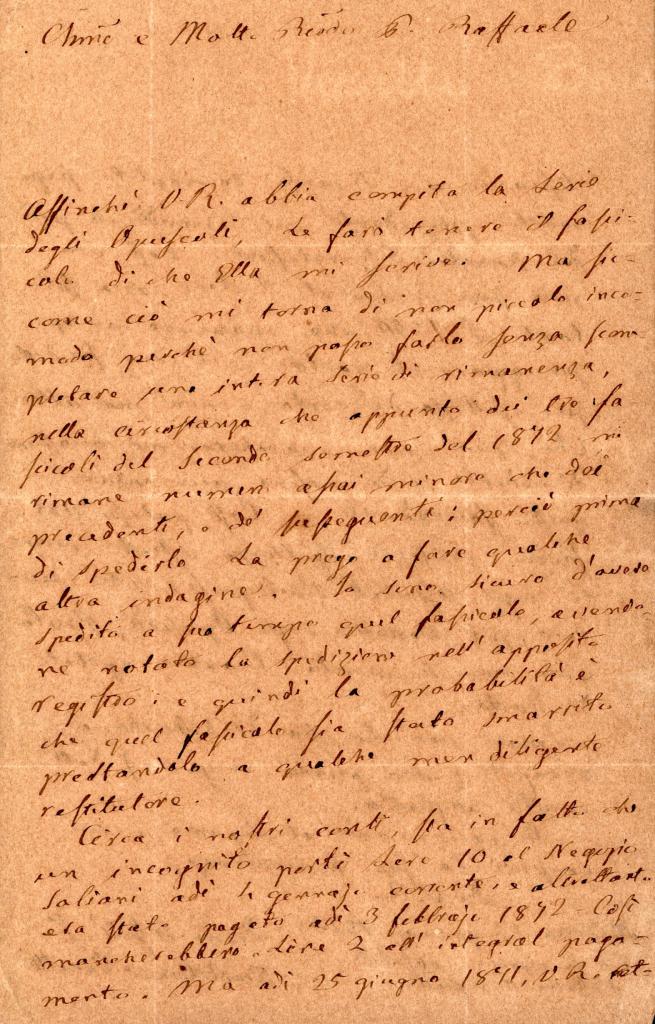 Chmo e Molto Rendo P. Raffaele
Affinchè V. R. abbia compita la Serie
degli Opuscoli, Le farò tenere il fasci-
colo di che Ella mi scrive. Ma sic-
come ciò mi torna di non piccolo inco-
modo perchè non posso farlo senza scom-
pletare una intera Serie di rimanenza,
nella circostanza che appunto dei tre fa
scicoli del Secondo semestre del 1872 mi
rimane numero assai minore che dei
precedenti, o de' susseguenti; perciò prima
di spedirlo La prego a fare qualche
altra indagine. Io sono sicuro d'avere
spedito a suo tempo quel fascicolo, avendo-
ne notato la spedizione nell'apposito
registro; e quindi la probabilità è
che quel fascicolo sia stato smarrito
prestandolo a qualche men diligente
restitutore.
Circa i nostri conti, sta in fatto che
un incognito portò Lire 10 al Negozio
Soliani adì gennajo corrente, e altrettanto
era stato pagato adì 3 febbrajo 1872 - Così
mancherebbero Lire 2 all'integral paga-
mento. Ma adì 25 giugno 1871, V. R.